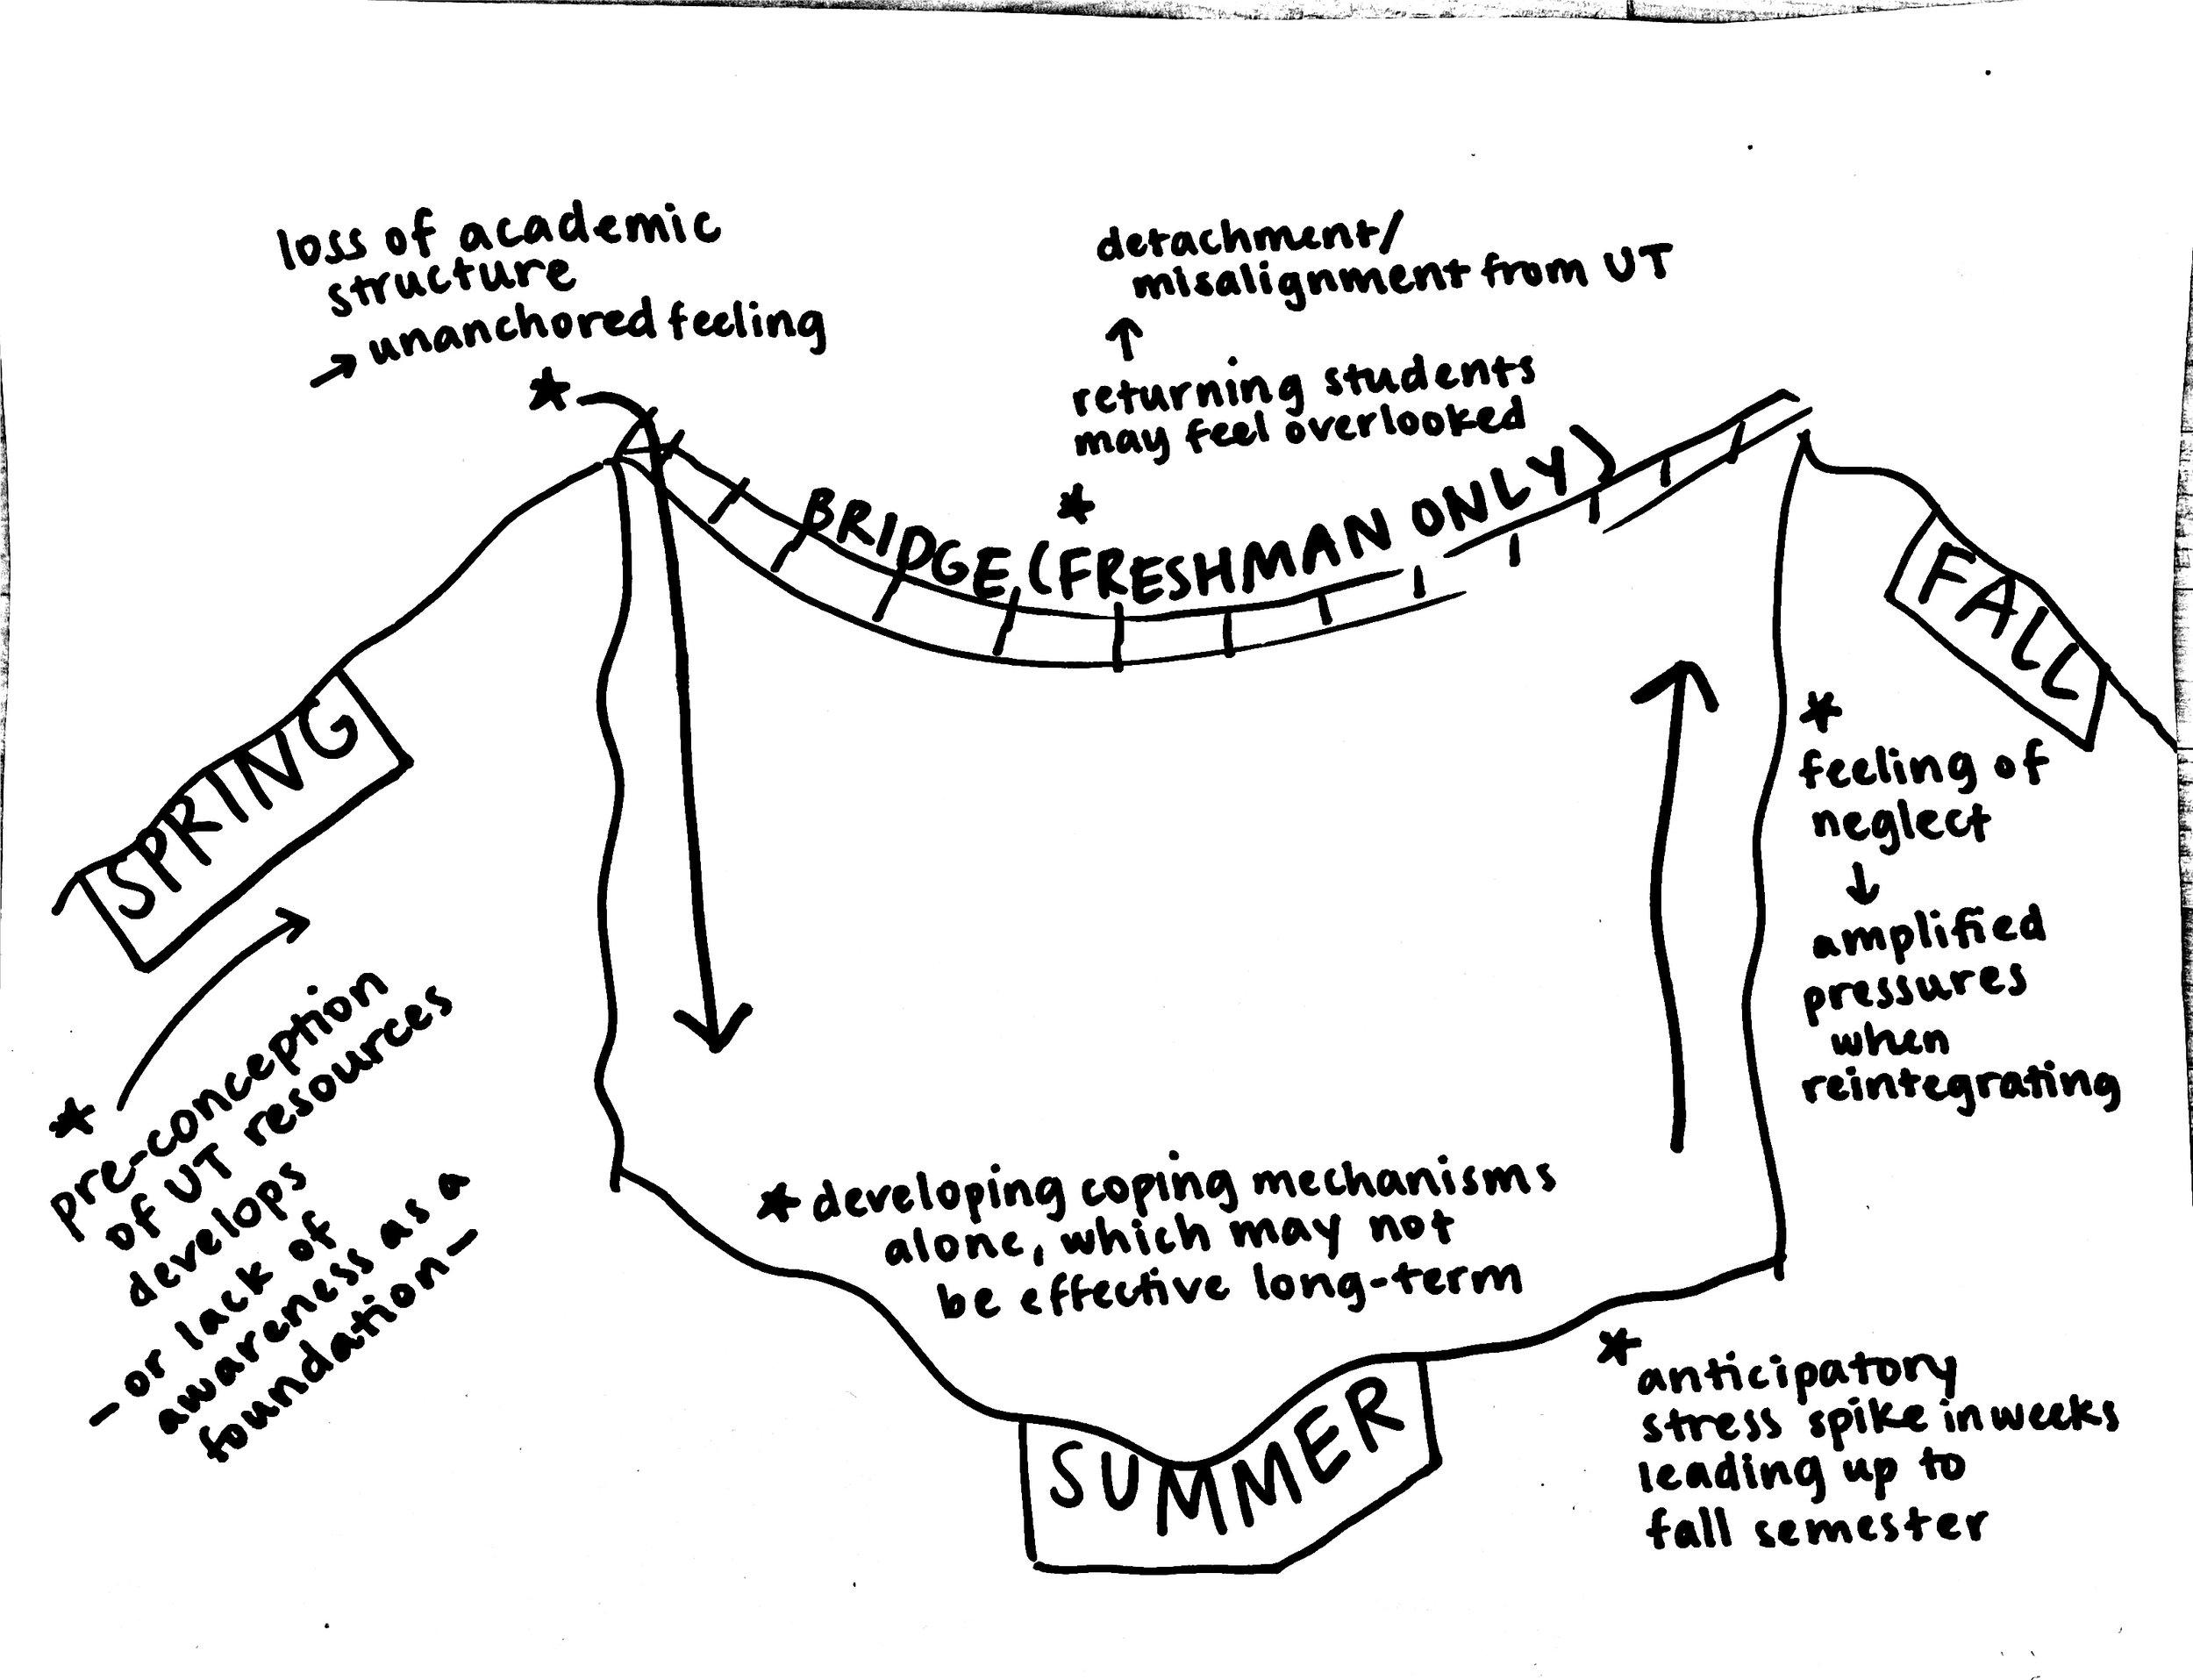 loss of academic
structure
→ unanchored feeling
*
detachment/
misalignment from UT
↑
returning students
may feel overlooked
*
BRIDGE (FRESHMAN ONLY)
SPRING
FALL
*
pre-conception
of UT resources
develops
- or lack of
awareness as a
foundation -
*
feeling of
neglect
↓
amplified
pressures
when
reintegrating
* developing coping mechanisms
alone, which may not
be effective long-term
SUMMER
*
anticipatory
stress spike in weeks
leading up to
fall semester